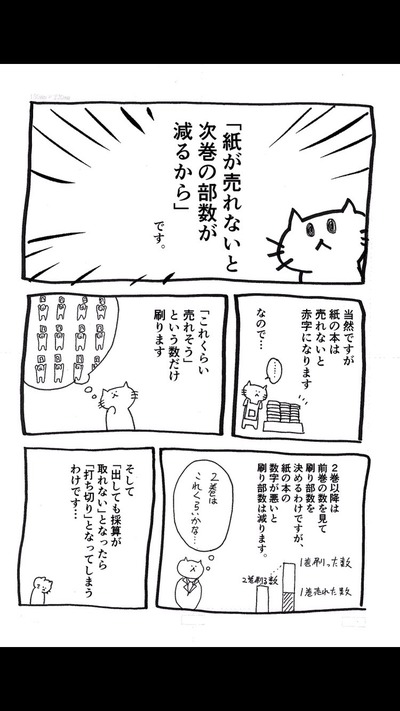 「紙が売れないと
次巻の部数が
減るから」
です。
当然ですが
紙の本は
売れないと
赤字になります
なので…
……
「これくらい
売れそう」
という数だけ
刷ります
２巻以降は
前巻の数を見て
刷り部数を
決めるわけですが、
紙の本の
数字が悪いと
刷り部数は減ります。
２巻は
これくらいかな…
1巻刷った数
2巻刷る数
1巻売れた数
そして
「出しても採算が
取れない」となったら
「打ち切り」となってしまう
わけです…